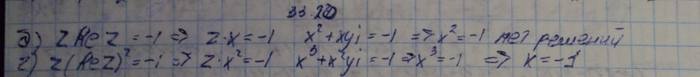 33.20
д) z Re z = -1 => z·x = -1 x² + xyi = -1 => x² = -1 нет решений
г) z(Re z)² = -i => z·x² = -1 x³ + x²yi = -1 => x³ = -1 => x = -1